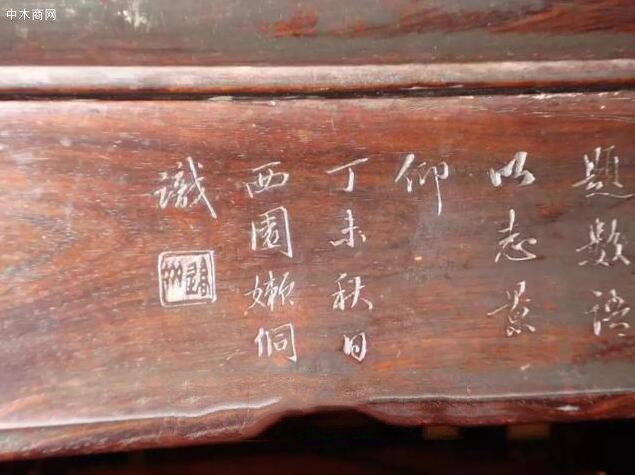 中木商网
题数语
以志景
仰
丁未秋日
西園嬾侗
識